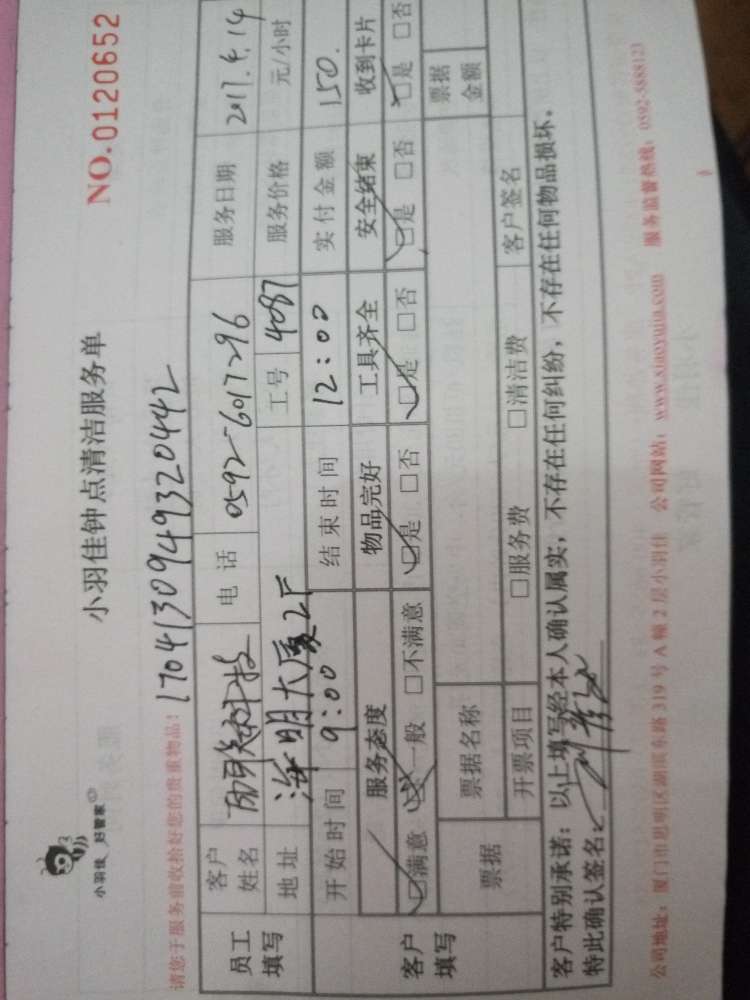 小羽佳 好管家
小羽佳钟点清洁服务单
NO.0120652
请您于服务前收拾好您的贵重物品！
170413094932044 2
员工填写 客户姓名 电话 0592-6017296 服务日期 2017.4.14
地址 海明大厦2F 工号 4087 服务价格 元/小时
开始时间 9:00 结束时间 12:00 实付金额 150.
客户填写 服务态度 物品完好 工具齐全 安全结束 收到卡片
□满意 □一般 □不满意 □是 □否 □是 □否 □是 □否 □是 □否
票据 票据名称 票据金额
开票项目 □服务费 □清洁费 客户签名
客户特别承诺：以上填写经本人确认属实，不存在任何纠纷，不存在任何物品损坏。
特此确认签名：
公司地址：厦门市思明区湖滨东路319号A幢2层小羽佳 公司网站：www.xiaoyujia.com 服务监督热线：0592-5888123